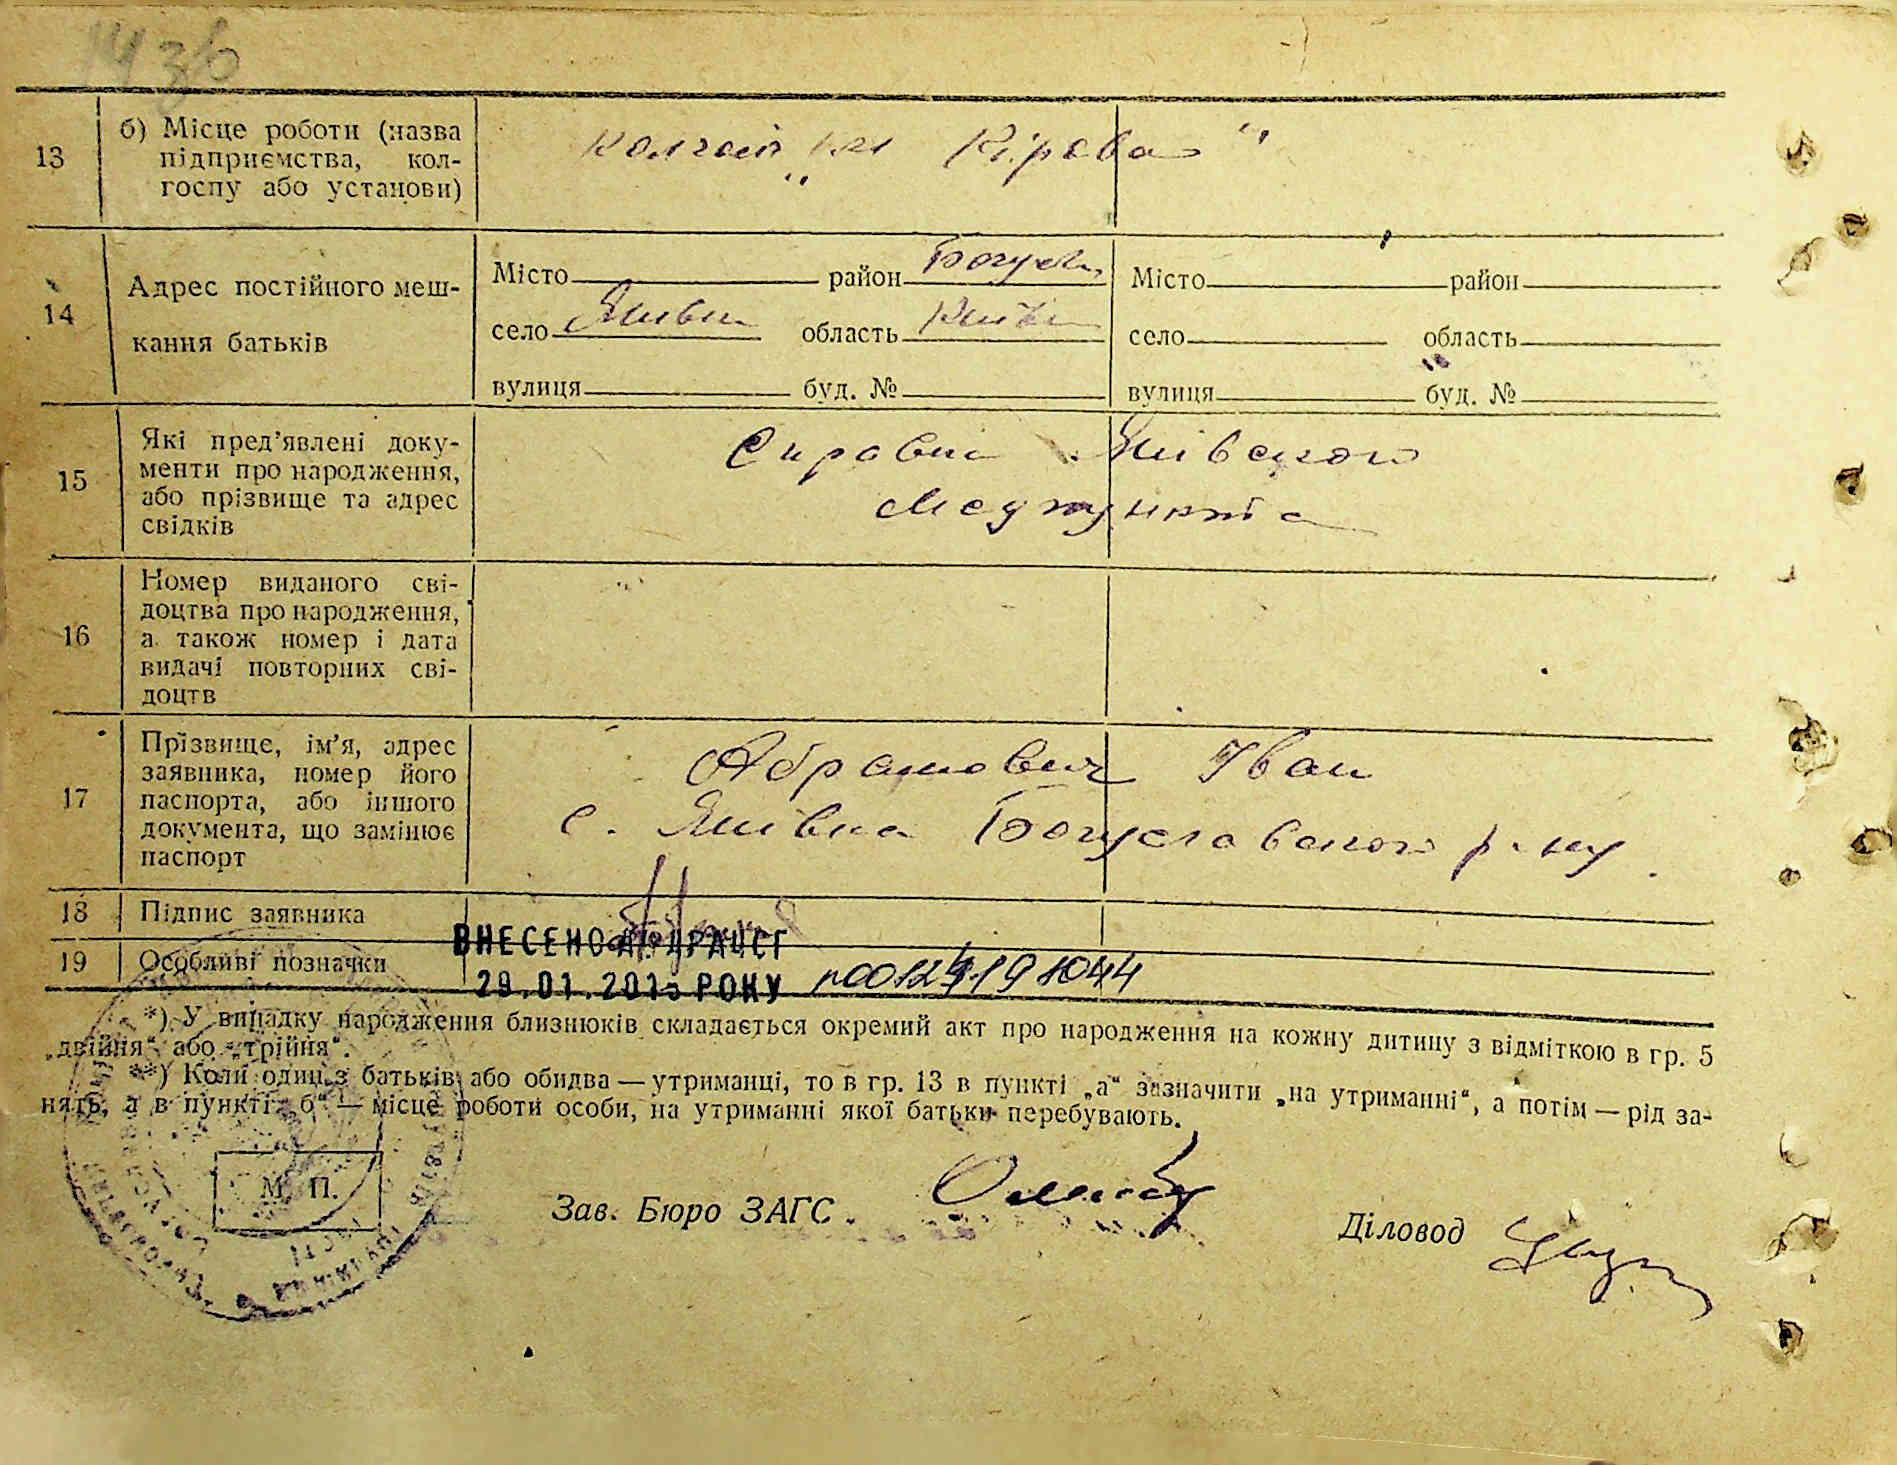 14 зв
13
б) Місце роботи (назва
підприємства, кол-
госпу або установи)
колгосп „ім Кірова“
14
Адрес постійного меш-
кання батьків
Місто район Богусл
село Яхівка область Київ
вулиця буд. №
Місто район
село область
вулиця буд. №
15
Які пред’явлені доку-
менти про народження,
або прізвище та адрес
свідків
Справка
Медпункта
16
Номер виданого сві-
доцтва про народження,
а також номер і дата
видачі повторних сві-
доцтв
17
Прізвище, ім’я, адрес
заявника, номер його
паспорта, або іншого
документа, що замінює
паспорт
Абрамович Іван
с. Богуславського р-ну
18 Підпис заявника
19 Особливі позначки
ВНЕСЕНО ДРАЦСГ
29.01.2015 РОКУ
*) У випадку народження близнюків складається окремий акт про народження на кожну дитину з відміткою в гр. 5
„двійня“ або „трійня“.
**) Коли один з батьків або обидва — утриманці, то в гр. 13 в пункті „а“ зазначити „на утриманні“, а потім — рід за-
нять, а в пункті „б“ — місце роботи особи, на утриманні якої батьки перебувають.
М. П.
Зав. Бюро ЗАГС
Діловод